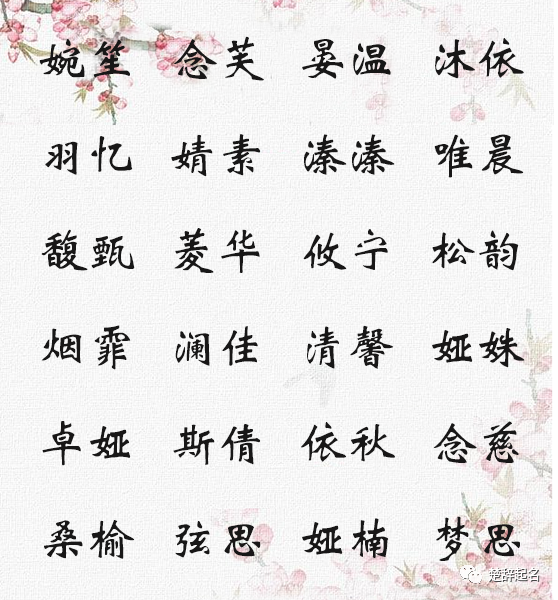 婉笙 念芙 晏温 沐依
羽忆 婧素 溱溱 唯晨
馥甄 菱华 攸宁 松韵
烟霏 澜佳 清馨 娅姝
卓娅 斯倩 依秋 念慈
桑榆 弦思 娅楠 梦思
楚辞起名